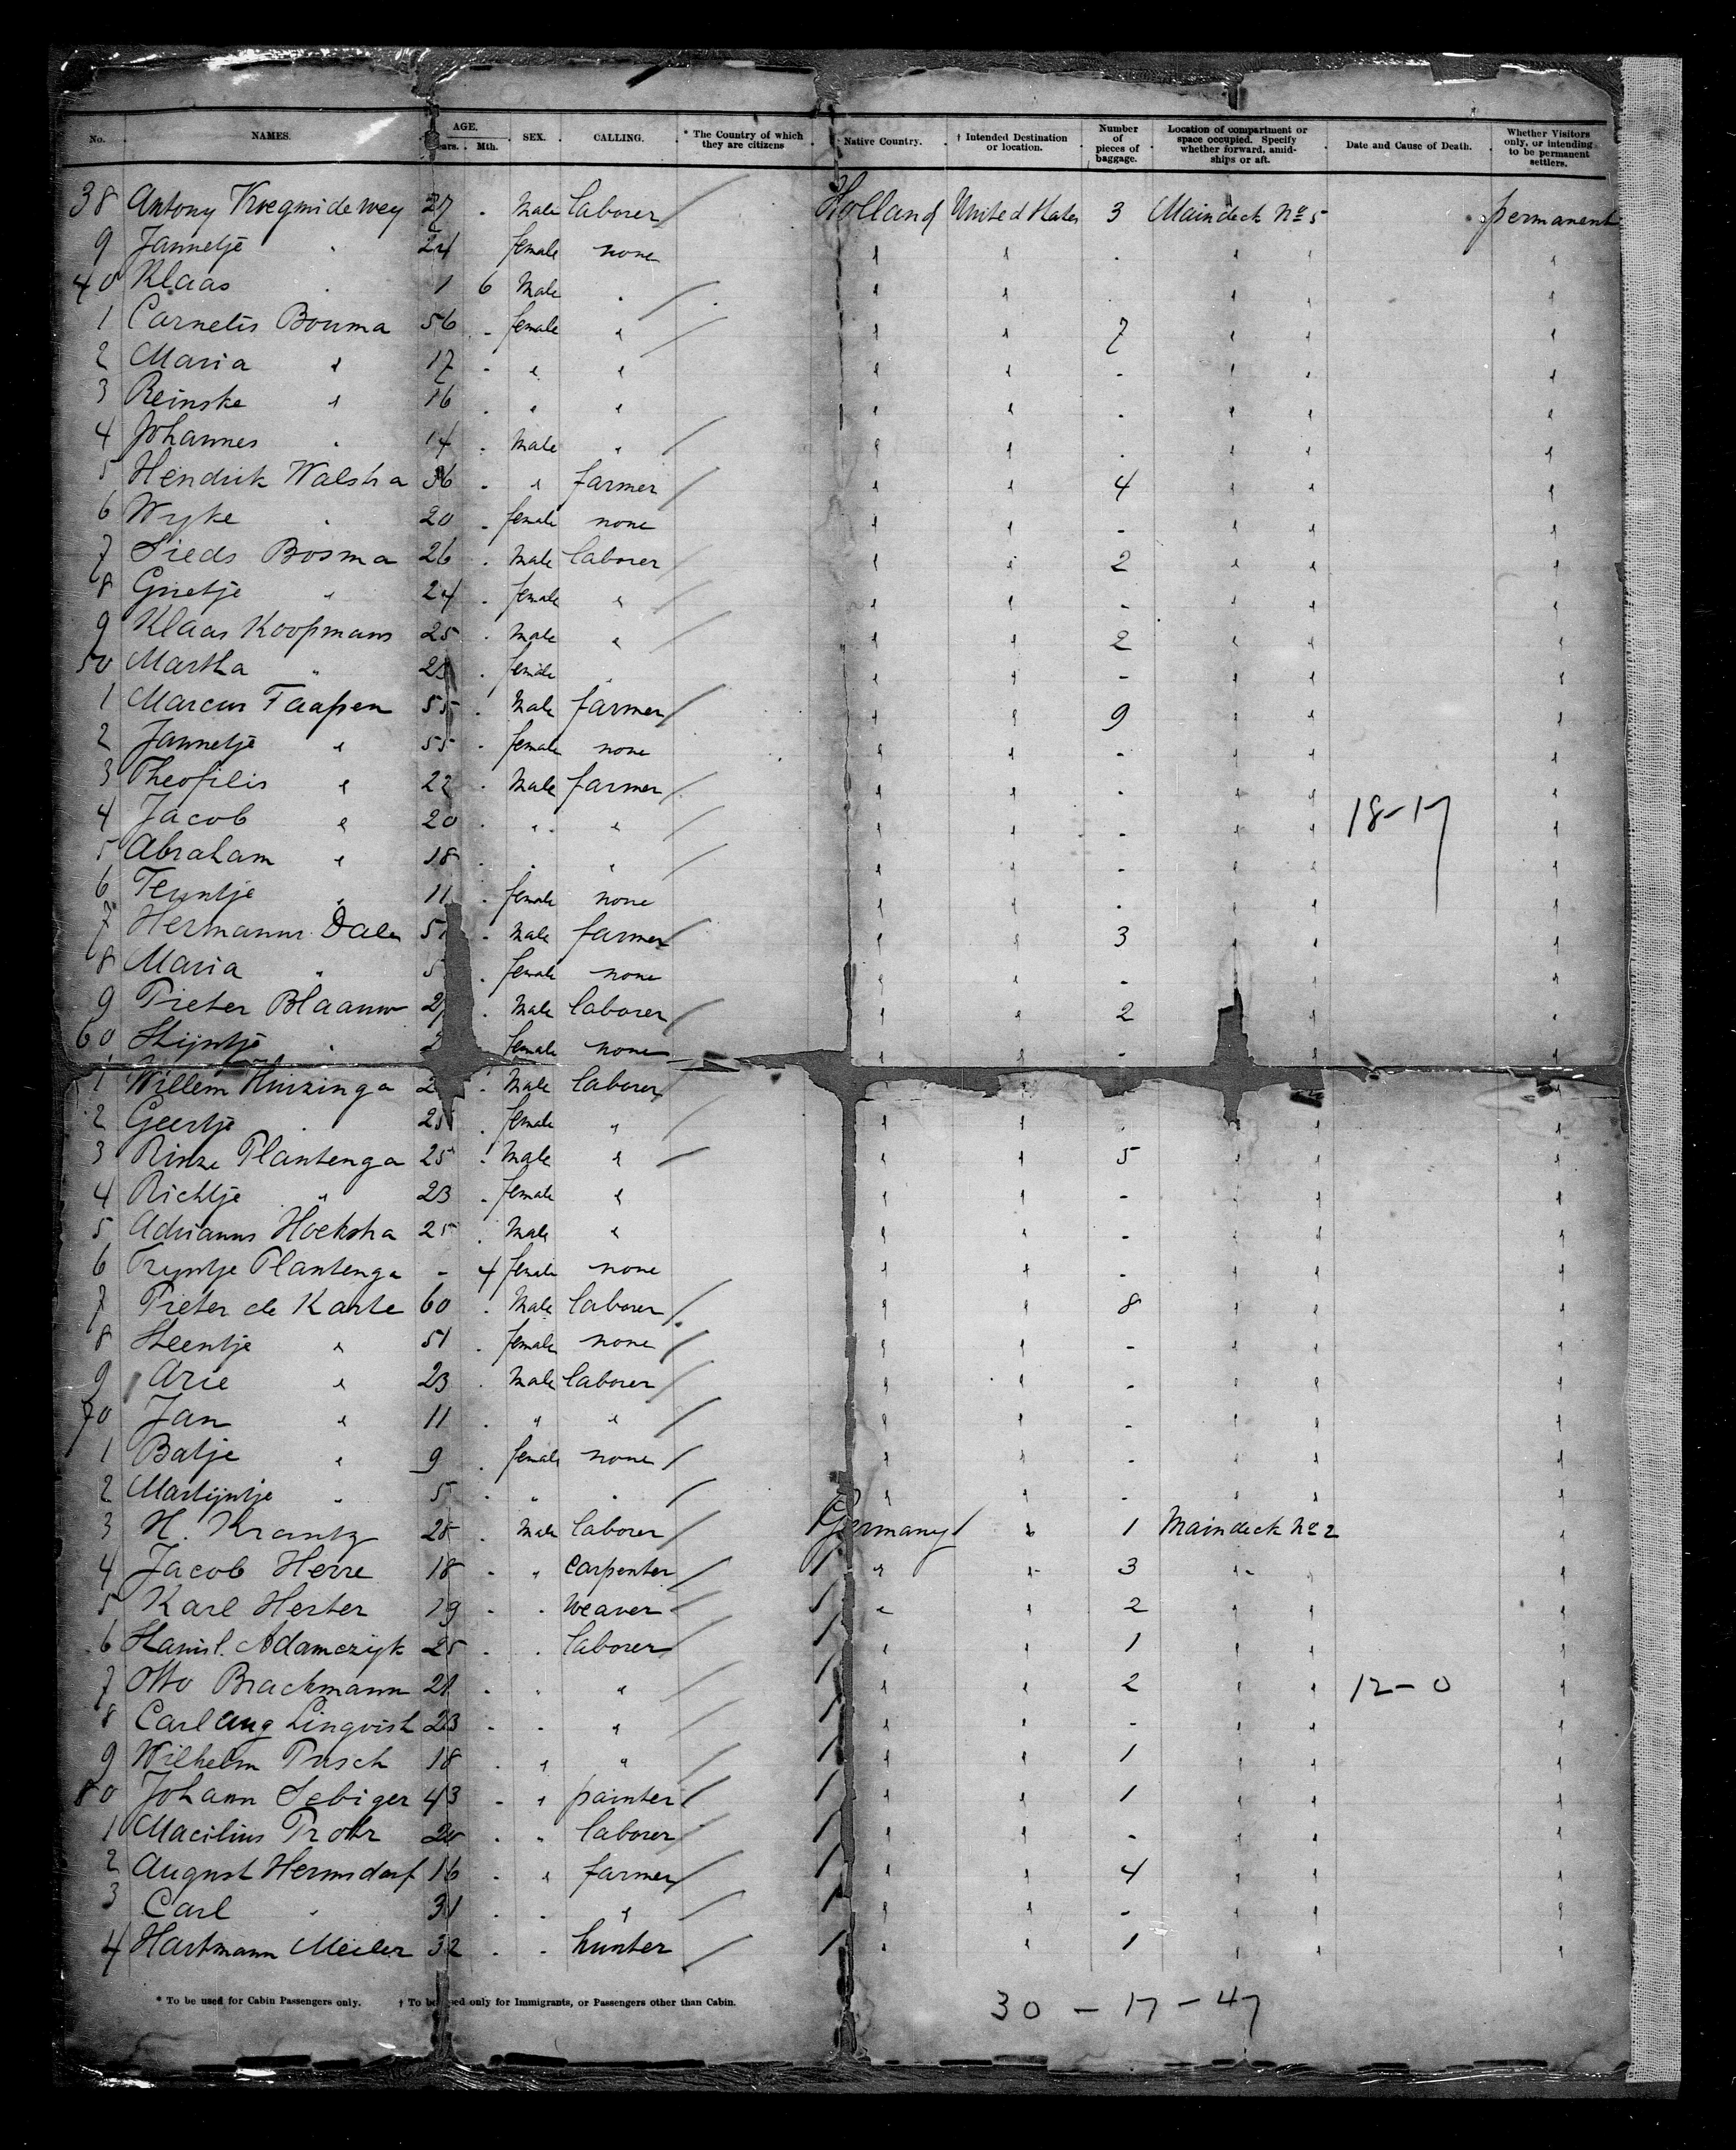 No. NAMES. AGE. Years. Mth. SEX. CALLING. * The Country of which they are citizens Native Country. † Intended Destination or location. Number of pieces of baggage. Location of compartment or space occupied. Specify whether forward, amid-ships or aft. Date and Cause of Death. Whether Visitors only, or intending to be permanent settlers.
38 Antony 27 . Male laborer / Holland United States 3 Maindeck No 5 permanent
9 Jannetje " 24 female none " " . " " "
40 Klaas . 1 6 Male . / " " . " " "
1 Carnelis Bouma 56 . female " / " " 7 " " "
2 Maria " 17 . " " " " . " " "
3 Reinske " 16 . " " " " . " " "
4 Johannes . 14 . Male " / " " . " " "
5 Hendrik Walstra 36 . " farmer / " " 4 " " "
6 Wyke . 20 . female none " " - " " "
7 Sieds Bosma 26 . Male laborer / " " 2 " " "
8 Grietje " 24 . female " / " " - " " "
9 Klaas Koopmans 25 . Male " / " " 2 " " "
50 Martha " 23 . female . " " - " " "
1 Marcus Taapen 55 . Male farmer / " " 9 " " "
2 Jannetje " 55 . female none " " - " " "
3 Theofilis " 22 . Male farmer / " " . " " "
4 Jacob " 20 . " " / " " - " " 18-17 "
5 Abraham " 18 . . " / " " - " " "
6 Teuntje . 11 . female none " " . " " "
7 Hermanus Dale 5 . Male farmer / " " 3 " " "
8 Maria " 5 . female none " " - " "
9 Pieter Blaauw 2 . Male laborer / " " 2 " "
60 Stijntje . 2 female none " " - " "
1 Willem Huizinga 2 . Male laborer / "
2 Geertje . 25 . female " / " " . " " "
3 Rinze Plantenga 25 . Male " / " " 5 " " "
4 Richtje " 23 . female " " " - " " "
5 Adrianus Hoekstra 25 . Male " " " - " " "
6 Tryntje Plantenga - 4 female none " " - " " "
7 Pieter de Karte 60 . Male laborer / " " 8 " " "
8 Steentje " 51 . female none / " " - " " "
9 Arie " 23 . Male laborer / " " - " " "
70 Jan " 11 . " " / " " - " " "
1 Batje " 9 . female none / " " - " " "
2 Martijntje " 5 . " . / " " - " " "
3 H. Krantz 25 . Male laborer / Germany " 1 Maindeck No 2 "
4 Jacob Herre 18 . " carpenter / " " 3 " " "
5 Karl Herter 19 . . weaver / " " 2 " " "
6 Stanisl. Adamczyk 25 . . laborer / " " 1 " " "
7 Otto Brachmann 21 . . " / " " 2 " " 12-0 "
8 Carl Aug Linqvist 23 . . " / " " - " " "
9 Wilhelm Pusch 18 . " " / " " 1 " " "
80 Johann Sebiger 43 - " painter / " " 1 " " "
1 20 . " laborer / " " - " " "
2 August Hermsdorf 16 . " farmer / " " 4 " " "
3 Carl " 31 . . " / " " - " " "
4 Hartmann Meiler 32 . . hunter / " " 1 " " "
* To be used for Cabin Passengers only. † To be used only for Immigrants, or Passengers other than Cabin.
30 - 17 - 47